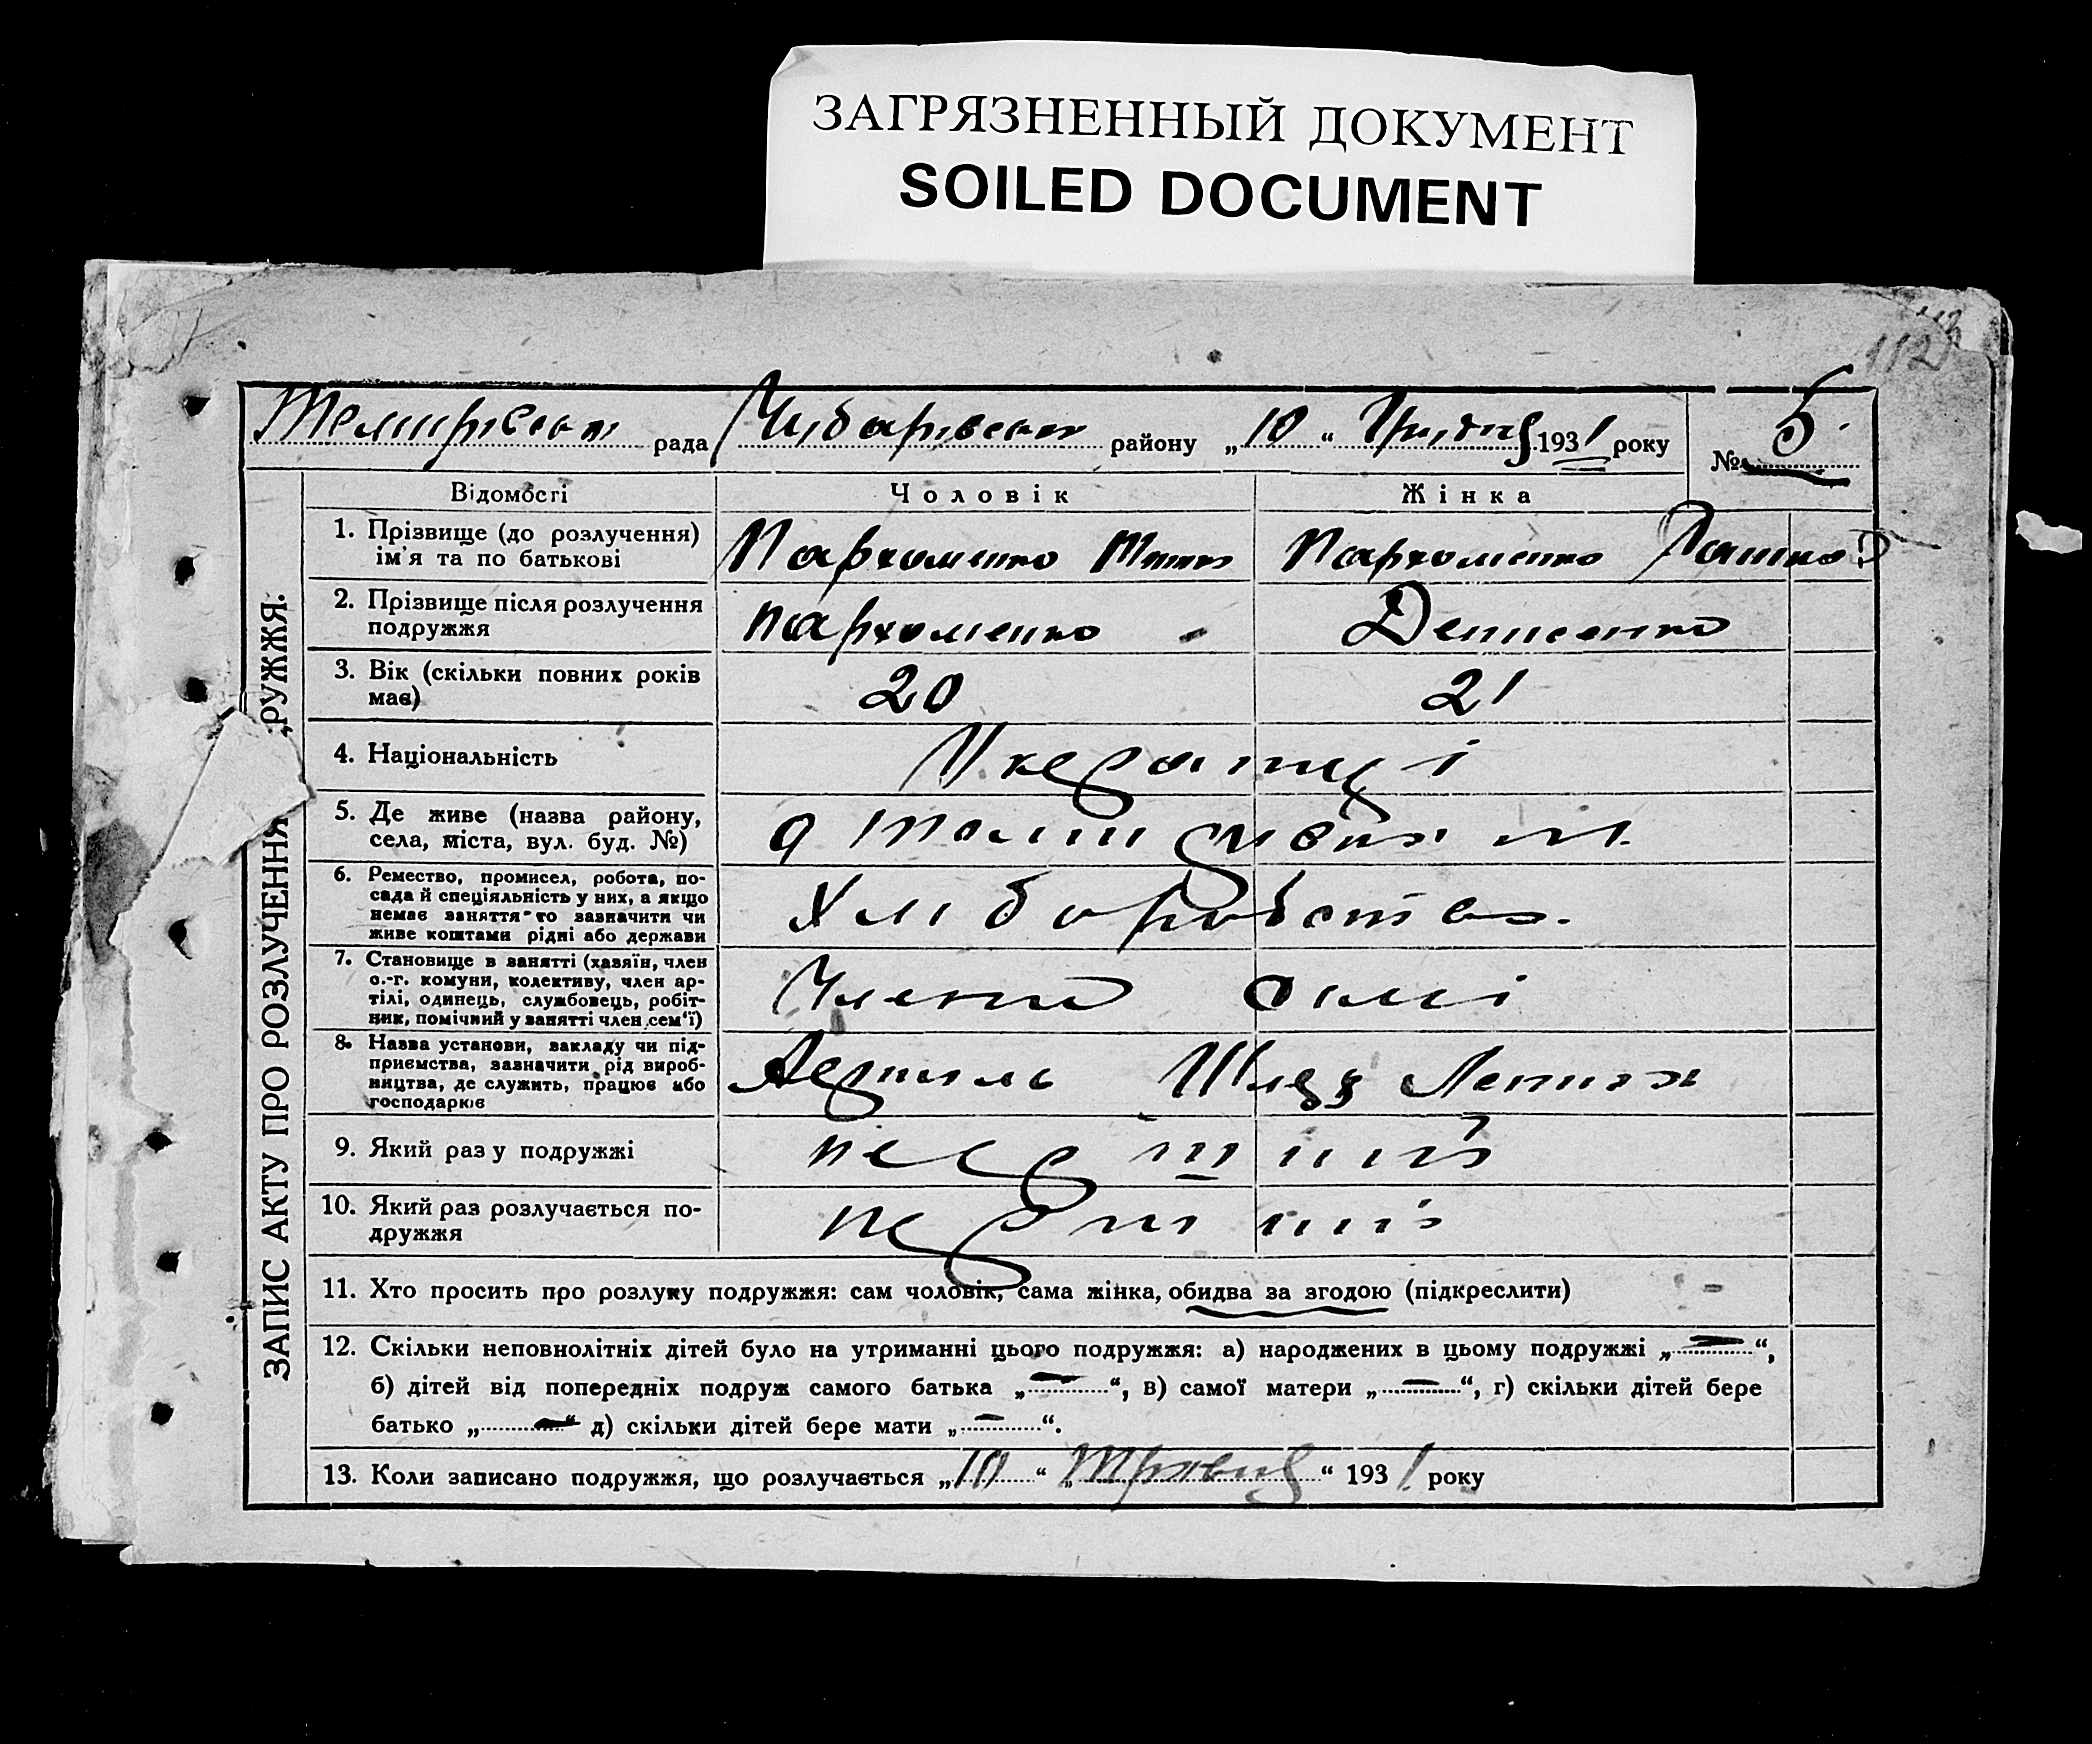 ЗАГРЯЗНЕННЫЙ ДОКУМЕНТ
SOILED DOCUMENT
112
рада Чубарівськ району „10“ Грудня 1931 року № 5.
ЗАПИС АКТУ ПРО РОЗЛУЧЕННЯ РУЖЖЯ.
Відомості Чоловік Жінка
1. Прізвище (до розлучення)
ім'я та по батькові
Пархоменко Пархоменко
2. Прізвище після розлучення
подружжя
Пархоменко Денисенко
3. Вік (скільки повних років
має)
20 21
4. Національність
5. Де живе (назва району,
села, міста, вул. буд. №)
6. Ремество, промисел, робота, по-
сада й спеціяльність у них, а якщо
немає заняття-то зазначити чи
живе коштами рідні або держави
Хліборобство.
7. Становище в занятті (хазяїн, член
с.-г. комуни, колективу, член ар-
тілі, одинець, службовець, робіт-
ник, помічний у занятті член сем'ї)
8. Назва установи, закладу чи під-
приємства, зазначити рід вироб-
ництва, де служить, працює або
господарює
Артиль
9. Який раз у подружжі
10. Який раз розлучається по-
дружжя
11. Хто просить про розлуку подружжя: сам чоловік, сама жінка, обидва за згодою (підкреслити)
12. Скільки неповнолітніх дітей було на утриманні цього подружжя: а) народжених в цьому подружжі „—“,
б) дітей від попередніх подруж самого батька „—“, в) самої матери „—“, г) скільки дітей бере
батько „—“ д) скільки дітей бере мати „—“.
13. Коли записано подружжя, що розлучається „10“ „Травня“ 1931 року